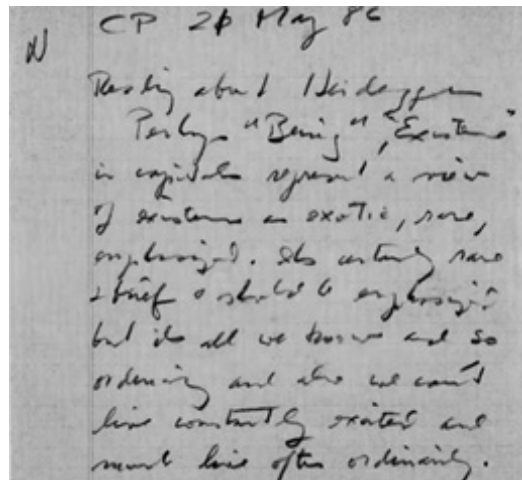 N
CP 26 May 86
Reading about Heidegger
Perhaps "Being", "Existence"
in capitals represent a view
of existence as exotic, rare,
emphasized. Its certainly rare
& brief & should be emphasized
but its all we know and so
ordinary and also we can't
live constantly excited and
must live often ordinarily.